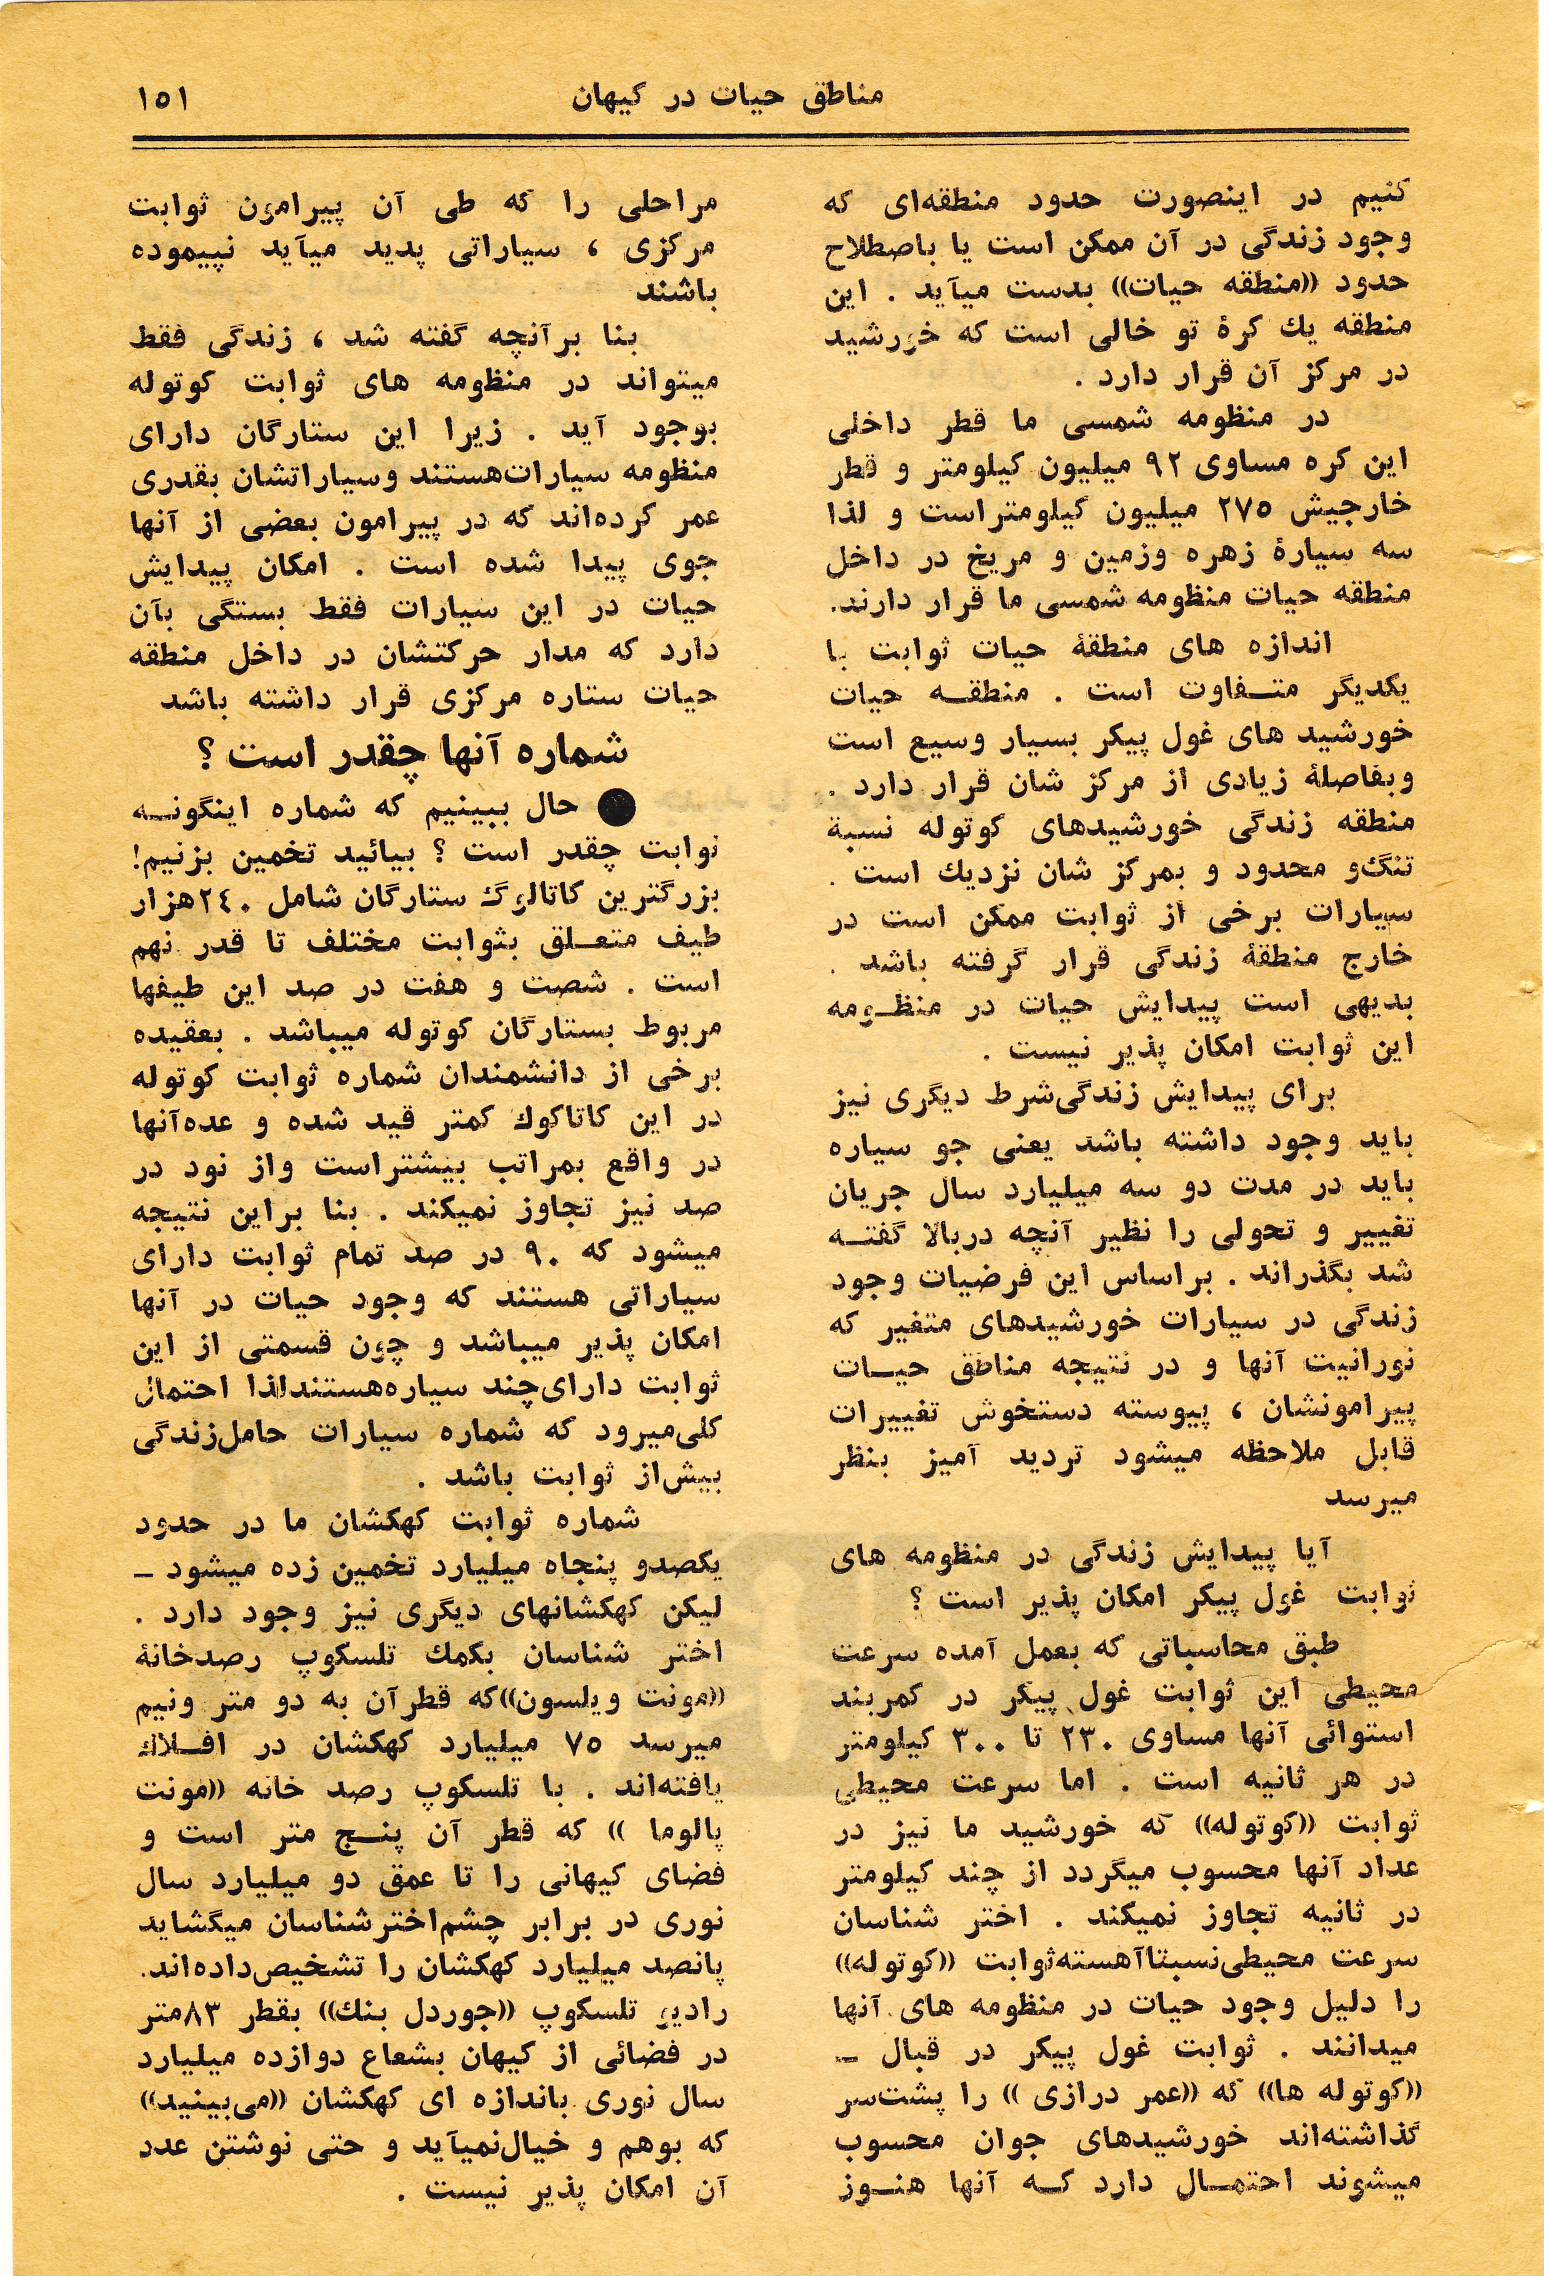 مناطق حیات در کیهان
۱۵۱
کنیم در اینصورت حدود منطقه‌ای که
وجود زندگی در آن ممکن است یا باصطلاح
حدود ((منطقه حیات)) بدست میآید . این
منطقه یك کرهٔ تو خالی است که خورشید
در مرکز آن قرار دارد .
در منظومه شمسی ما قطر داخلی
این کره مساوی ۹۲ میلیون کیلومتر و قطر
خارجیش ۲۷۵ میلیون کیلومتراست و لذا
سه سیارهٔ زهره وزمین و مریخ در داخل
منطقه حیات منظومه شمسی ما قرار دارند.
اندازه های منطقهٔ حیات ثوابت با
یکدیگر متـفاوت است . منطقـه حیات
خورشید های غول پیکر بسیار وسیع است
وبفاصلهٔ زیادی از مرکز شان قرار دارد .
منطقه زندگی خورشیدهای کوتوله نسبة
تنگ‌و محدود و بمرکز شان نزدیك است .
سیارات برخی از ثوابت ممکن است در
خارج منطقهٔ زندگی قرار گرفته باشد .
بدیهی است پیدایش حیات در منظـومه
این ثوابت امکان پذیر نیست .
برای پیدایش زندگی‌شرط دیگری نیز
باید وجود داشته باشد یعنی جو سیاره
باید در مدت دو سه میلیارد سال جریان
تغییر و تحولی را نظیر آنچه دربالا گفتـه
شد بگذراند . براساس این فرضیات وجود
زندگی در سیارات خورشیدهای متغیر که
نورانیت آنها و در نتیجه مناطق حیـات
پیرامونشان ، پیوسته دستخوش تغییرات
قابل ملاحظه میشود تردید آمیز بنظر
میرسد
آیا پیدایش زندگی در منظومه های
ثوابت غول پیکر امکان پذیر است ؟
طبق محاسباتی که بعمل آمده سرعت
محیطی این ثوابت غول پیکر در کمربند
استوائی آنها مساوی ۲۳۰ تا ۳۰۰ کیلومتر
در هر ثانیه است . اما سرعت محیطی
ثوابت ((کوتوله)) که خورشید ما نیز در
عداد آنها محسوب میگردد از چند کیلومتر
در ثانیه تجاوز نمیکند . اختر شناسان
سرعت محیطی‌نسبتاآهسته‌ثوابت ((کوتوله))
را دلیل وجود حیات در منظومه های آنها
میدانند . ثوابت غول پیکر در قبال ـ
((کوتوله ها)) که ((عمر درازی )) را پشت‌سر
گذاشته‌اند خورشیدهای جوان محسوب
میشوند احتمـال دارد کـه آنها هنـوز
مراحلی را که طی آن پیرامون ثوابت
مرکزی ، سیاراتی پدید میآید نپیموده
باشند
بنا برآنچه گفته شد ، زندگی فقط
میتواند در منظومه های ثوابت کوتوله
بوجود آید . زیرا این ستارگان دارای
منظومه سیارات‌هستند وسیاراتشان بقدری
عمر کرده‌اند که در پیرامون بعضی از آنها
جوی پیدا شده است . امکان پیدایش
حیات در این سیارات فقط بستگی بآن
دارد که مدار حرکتشان در داخل منطقه
حیات ستاره مرکزی قرار داشته باشد
شماره آنها چقدر است ؟
● حال ببینیم که شماره اینگونـه
ثوابت چقدر است ؟ بیائید تخمین بزنیم!
بزرگترین کاتالوگ ستارگان شامل ۲۴۰هزار
طیف متعـلق بثوابت مختلف تا قدر نهم
است . شصت و هفت در صد این طیفها
مربوط بستارگان کوتوله میباشد . بعقیده
برخی از دانشمندان شماره ثوابت کوتوله
در این کاتاکوك کمتر قید شده و عده‌آنها
در واقع بمراتب بیشتراست واز نود در
صد نیز تجاوز نمیکند . بنا براین نتیجه
میشود که ۹۰ در صد تمام ثوابت دارای
سیاراتی هستند که وجود حیات در آنها
امکان پذیر میباشد و چون قسمتی از این
ثوابت دارای‌چند سیاره‌هستندلذا احتمال
کلی‌میرود که شماره سیارات حامل‌زندگی
بیش‌از ثوابت باشد .
شماره ثوابت کهکشان ما در حدود
یکصدو پنجاه میلیارد تخمین زده میشود ـ
لیکن کهکشانهای دیگری نیز وجود دارد .
اختر شناسان بکمك تلسکوپ رصدخانهٔ
((مونت ویلسون))که قطرآن به دو متر ونیم
میرسد ۷۵ میلیارد کهکشان در افـلاك
یافته‌اند . با تلسکوپ رصد خانه ((مونت
پالوما )) که قطر آن پنـج متر است و
فضای کیهانی را تا عمق دو میلیارد سال
نوری در برابر چشم‌اخترشناسان میگشاید
پانصد میلیارد کهکشان را تشخیص‌داده‌اند.
رادیو تلسکوپ ((جوردل بنك)) بقطر ۸۳متر
در فضائی از کیهان بشعاع دوازده میلیارد
سال نوری باندازه ای کهکشان ((می‌بینید))
که بوهم و خیال‌نمیآید و حتی نوشتن عدد
آن امکان پذیر نیست .